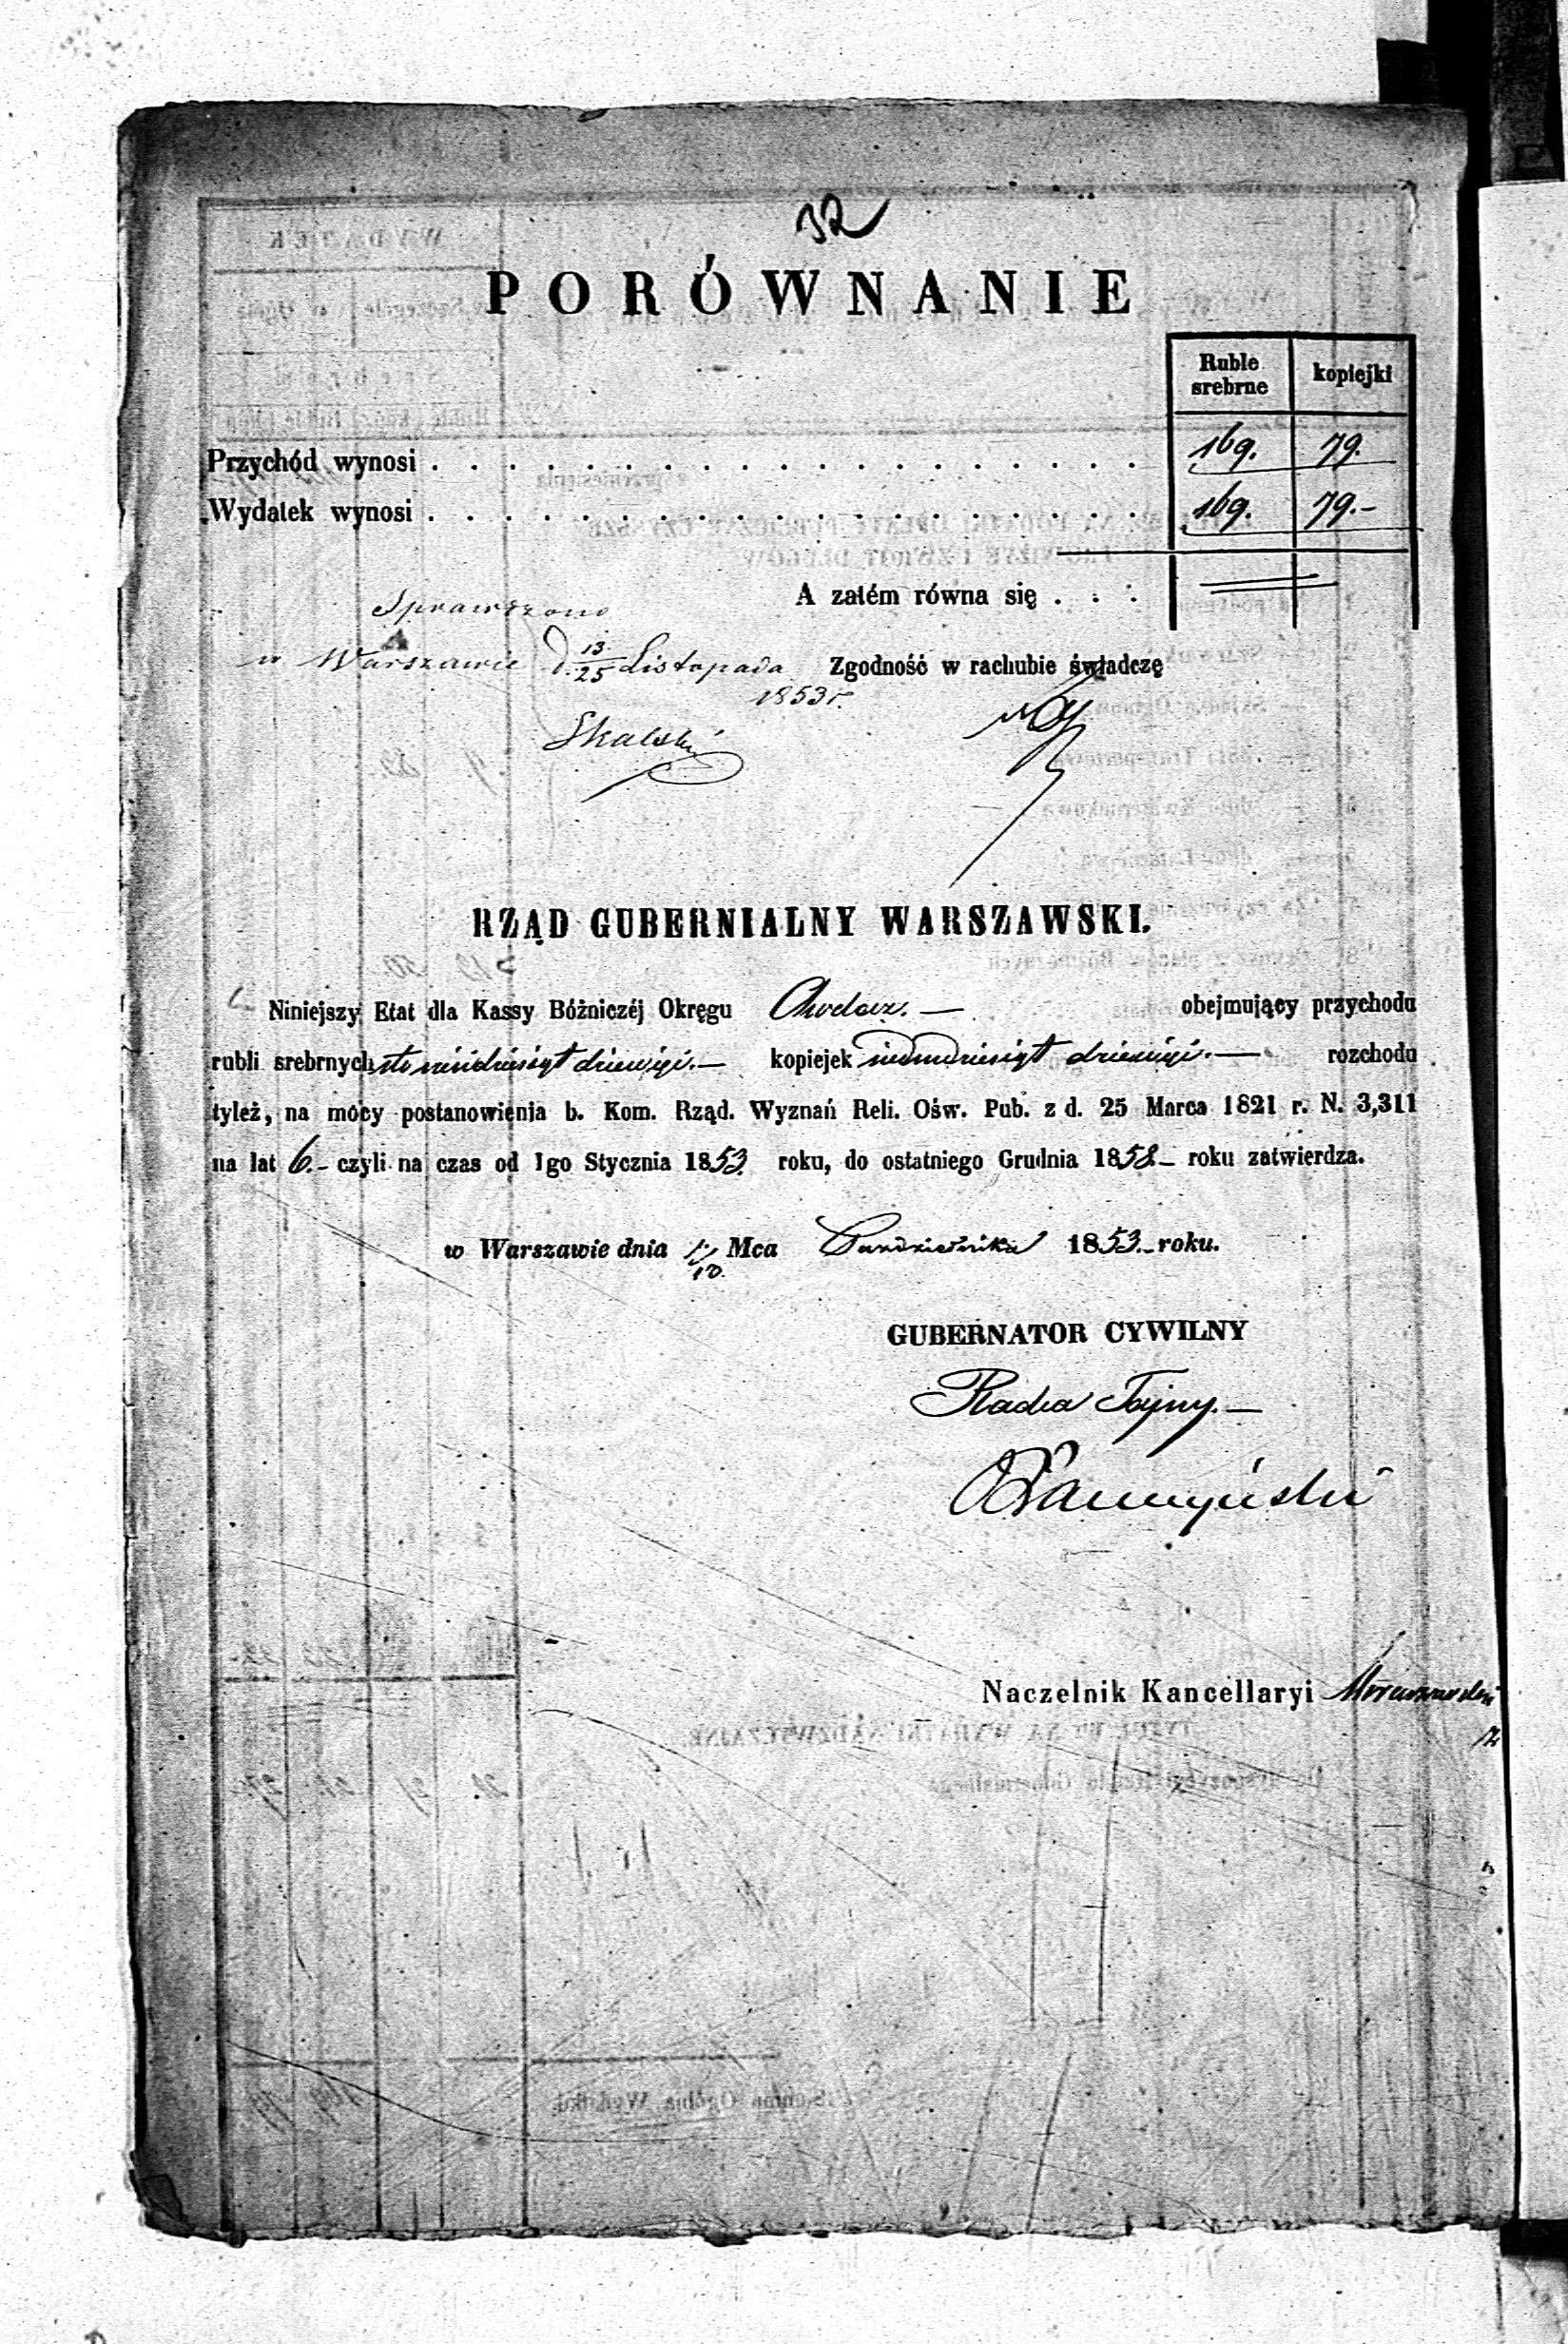 32
PORÓWNANIE
Ruble srebrne kopiejki
Przychód wynosi . . . . . . . . . . . . . . . . . . . 169. 79.
Wydatek wynosi . . . . . . . . . . . . . . . . . . . 169. 79.-
A zatém równa się . . .
Sprawdzono
w Warszawie d. 13/25 Listopada
1853 r.
Zgodność w rachubie świadczę
Skalski
RZĄD GUBERNIALNY WARSZAWSKI.
Niniejszy Etat dla Kassy Bóżniczéj Okręgu Chodecz. — obejmujący przychodu
rubli srebrnych sto sześćdziesiąt dziewięć. — kopiejek siedmdziesiąt dziewięć. — rozchodu
tyleż, na mocy postanowienia b. Kom. Rząd. Wyznań Reli. Ośw. Pub. z d. 25 Marca 1821 r. N. 3,311
na lat 6.- czyli na czas od 1go Stycznia 1853 roku, do ostatniego Grudnia 1858 - roku zatwierdza.
w Warszawie dnia Mca Października 1853.- roku.
GUBERNATOR CYWILNY
Radca Tajny. —
Naczelnik Kancellaryi